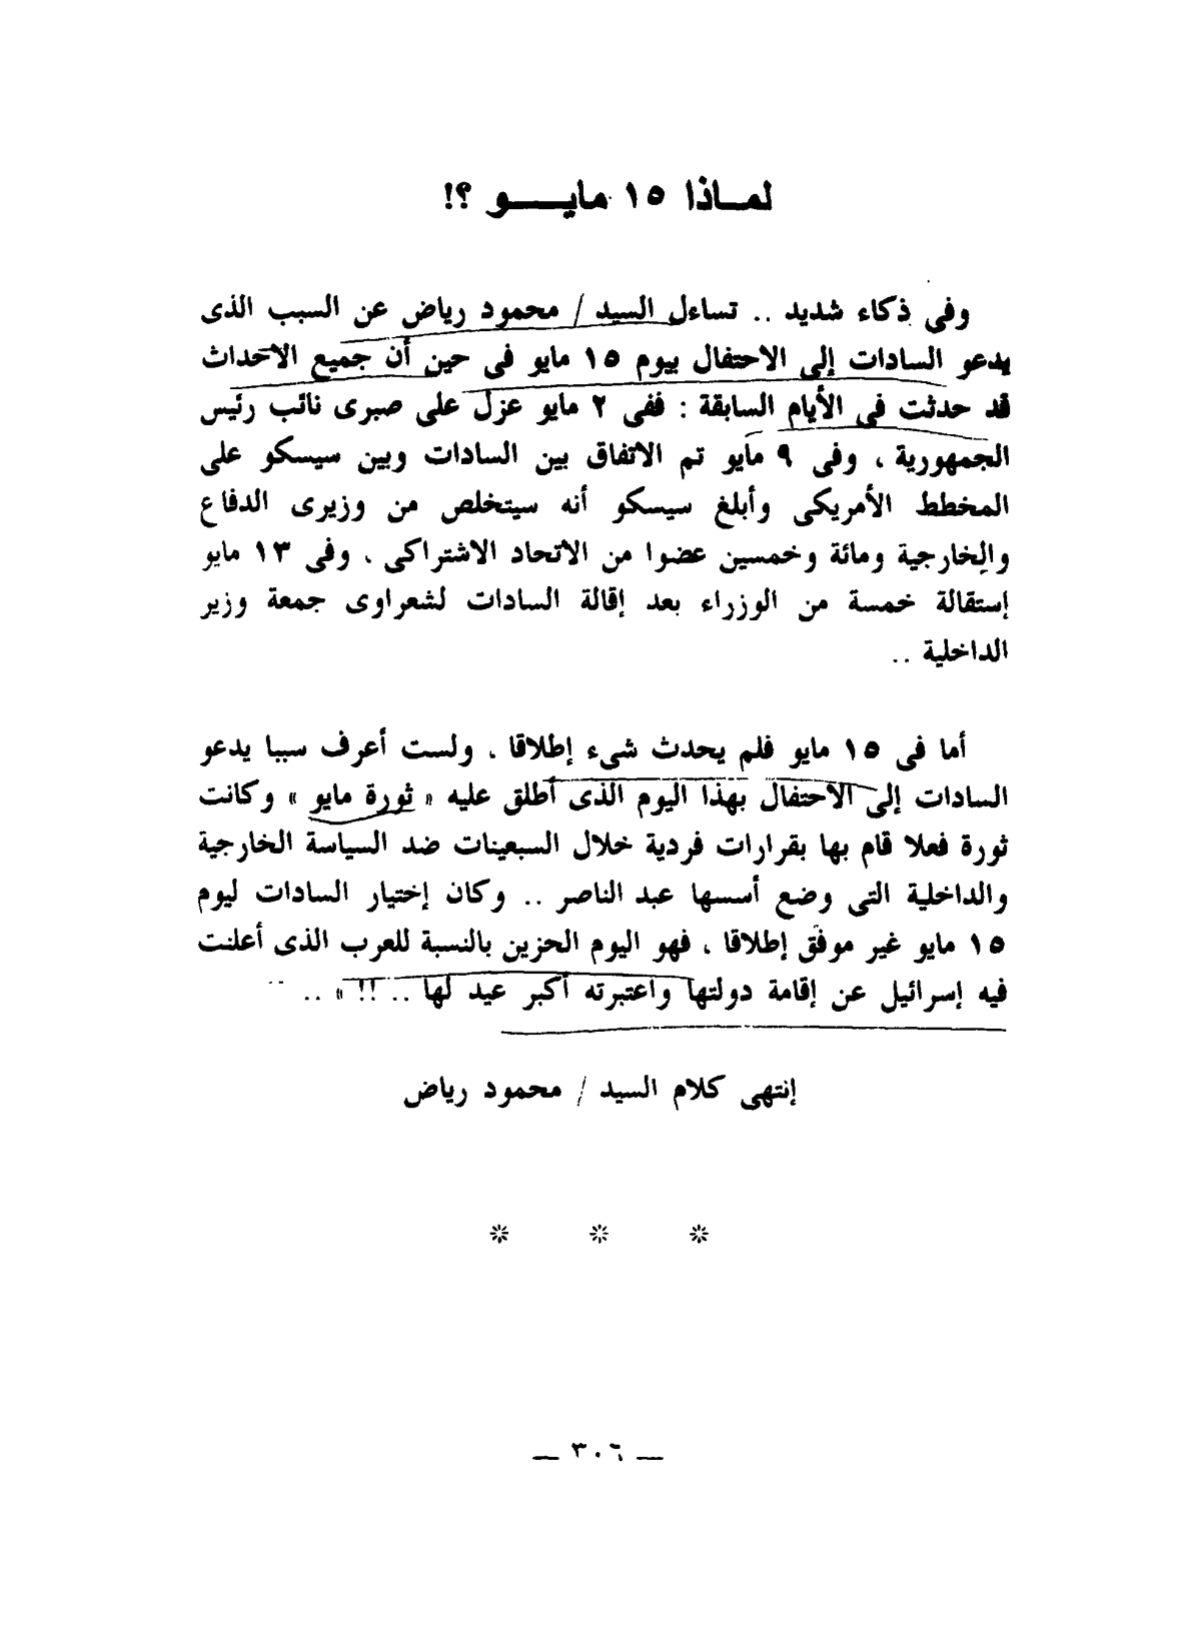 لمــاذا ١٥ مايــــو ؟!
وفى ذكاء شديد .. تساءل السيد / محمود رياض عن السبب الذى
يدعو السادات إلى الاحتفال بيوم ١٥ مايو فى حين أن جميع الأحداث
قد حدثت فى الأيام السابقة : ففى ٢ مايو عزل على صبرى نائب رئيس
الجمهورية ، وفى ٩ مايو تم الاتفاق بين السادات وبين سيسكو على
المخطط الأمريكى وأبلغ سيسكو أنه سيتخلص من وزيرى الدفاع
والخارجية ومائة وخمسين عضوا من الاتحاد الاشتراكى ، وفى ١٣ مايو
إستقالة خمسة من الوزراء بعد إقالة السادات لشعراوى جمعة وزير
الداخلية ..
أما فى ١٥ مايو فلم يحدث شىء إطلاقا ، ولست أعرف سببا يدعو
السادات إلى الاحتفال بهذا اليوم الذى أطلق عليه « ثورة مايو » وكانت
ثورة فعلا قام بها بقرارات فردية خلال السبعينات ضد السياسة الخارجية
والداخلية التى وضع أسسها عبد الناصر .. وكان إختيار السادات ليوم
١٥ مايو غير موفق إطلاقا ، فهو اليوم الحزين بالنسبة للعرب الذى أعلنت
فيه إسرائيل عن إقامة دولتها واعتبرته أكبر عيد لها .. !! » ..
إنتهى كلام السيد / محمود رياض
* * *
— ٣٠٦ —